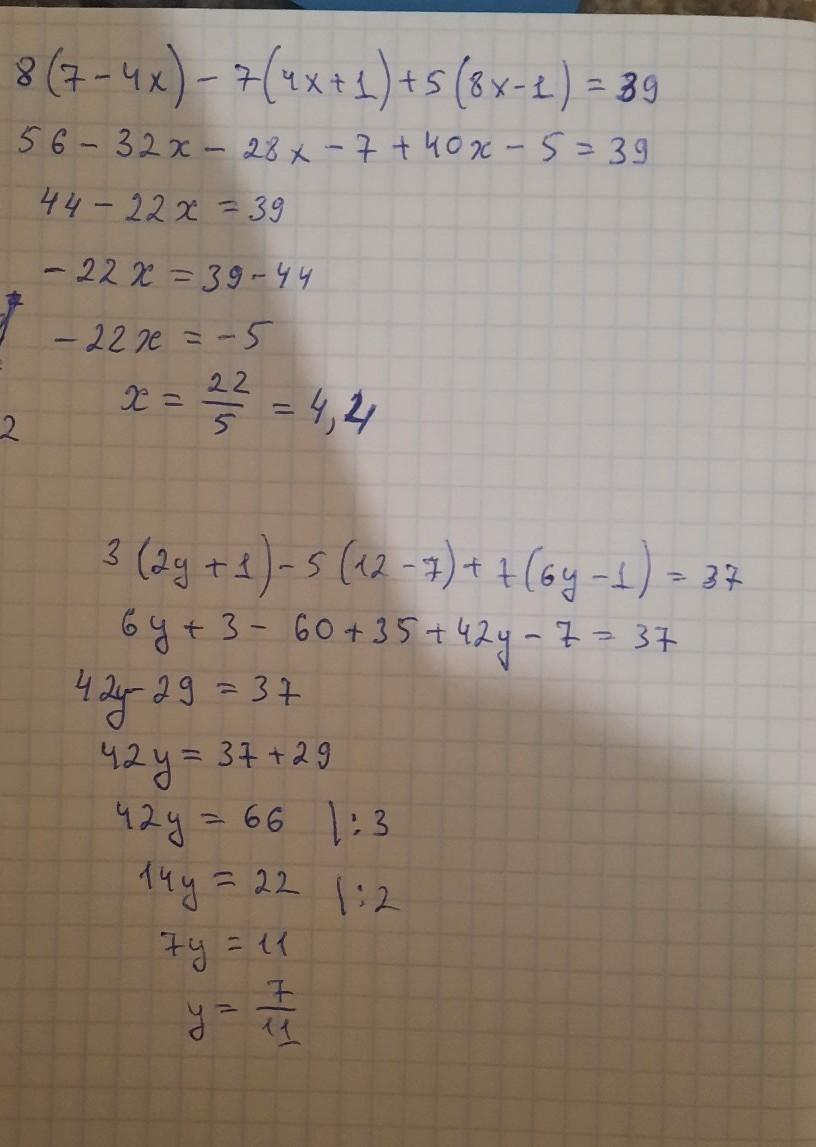 8(7-4x)-7(4x+1)+5(8x-1)=39
56-32x-28x-7+40x-5=39
44-22x=39
-22x=39-44
-22x=-5
x=22/5=4,4
2
3(2y+1)-5(12-7)+7(6y-1)=37
6y+3-60+35+42y-7=37
42y-29=37
42y=37+29
42y=66 |:3
14y=22 |:2
7y=11
y=7/11